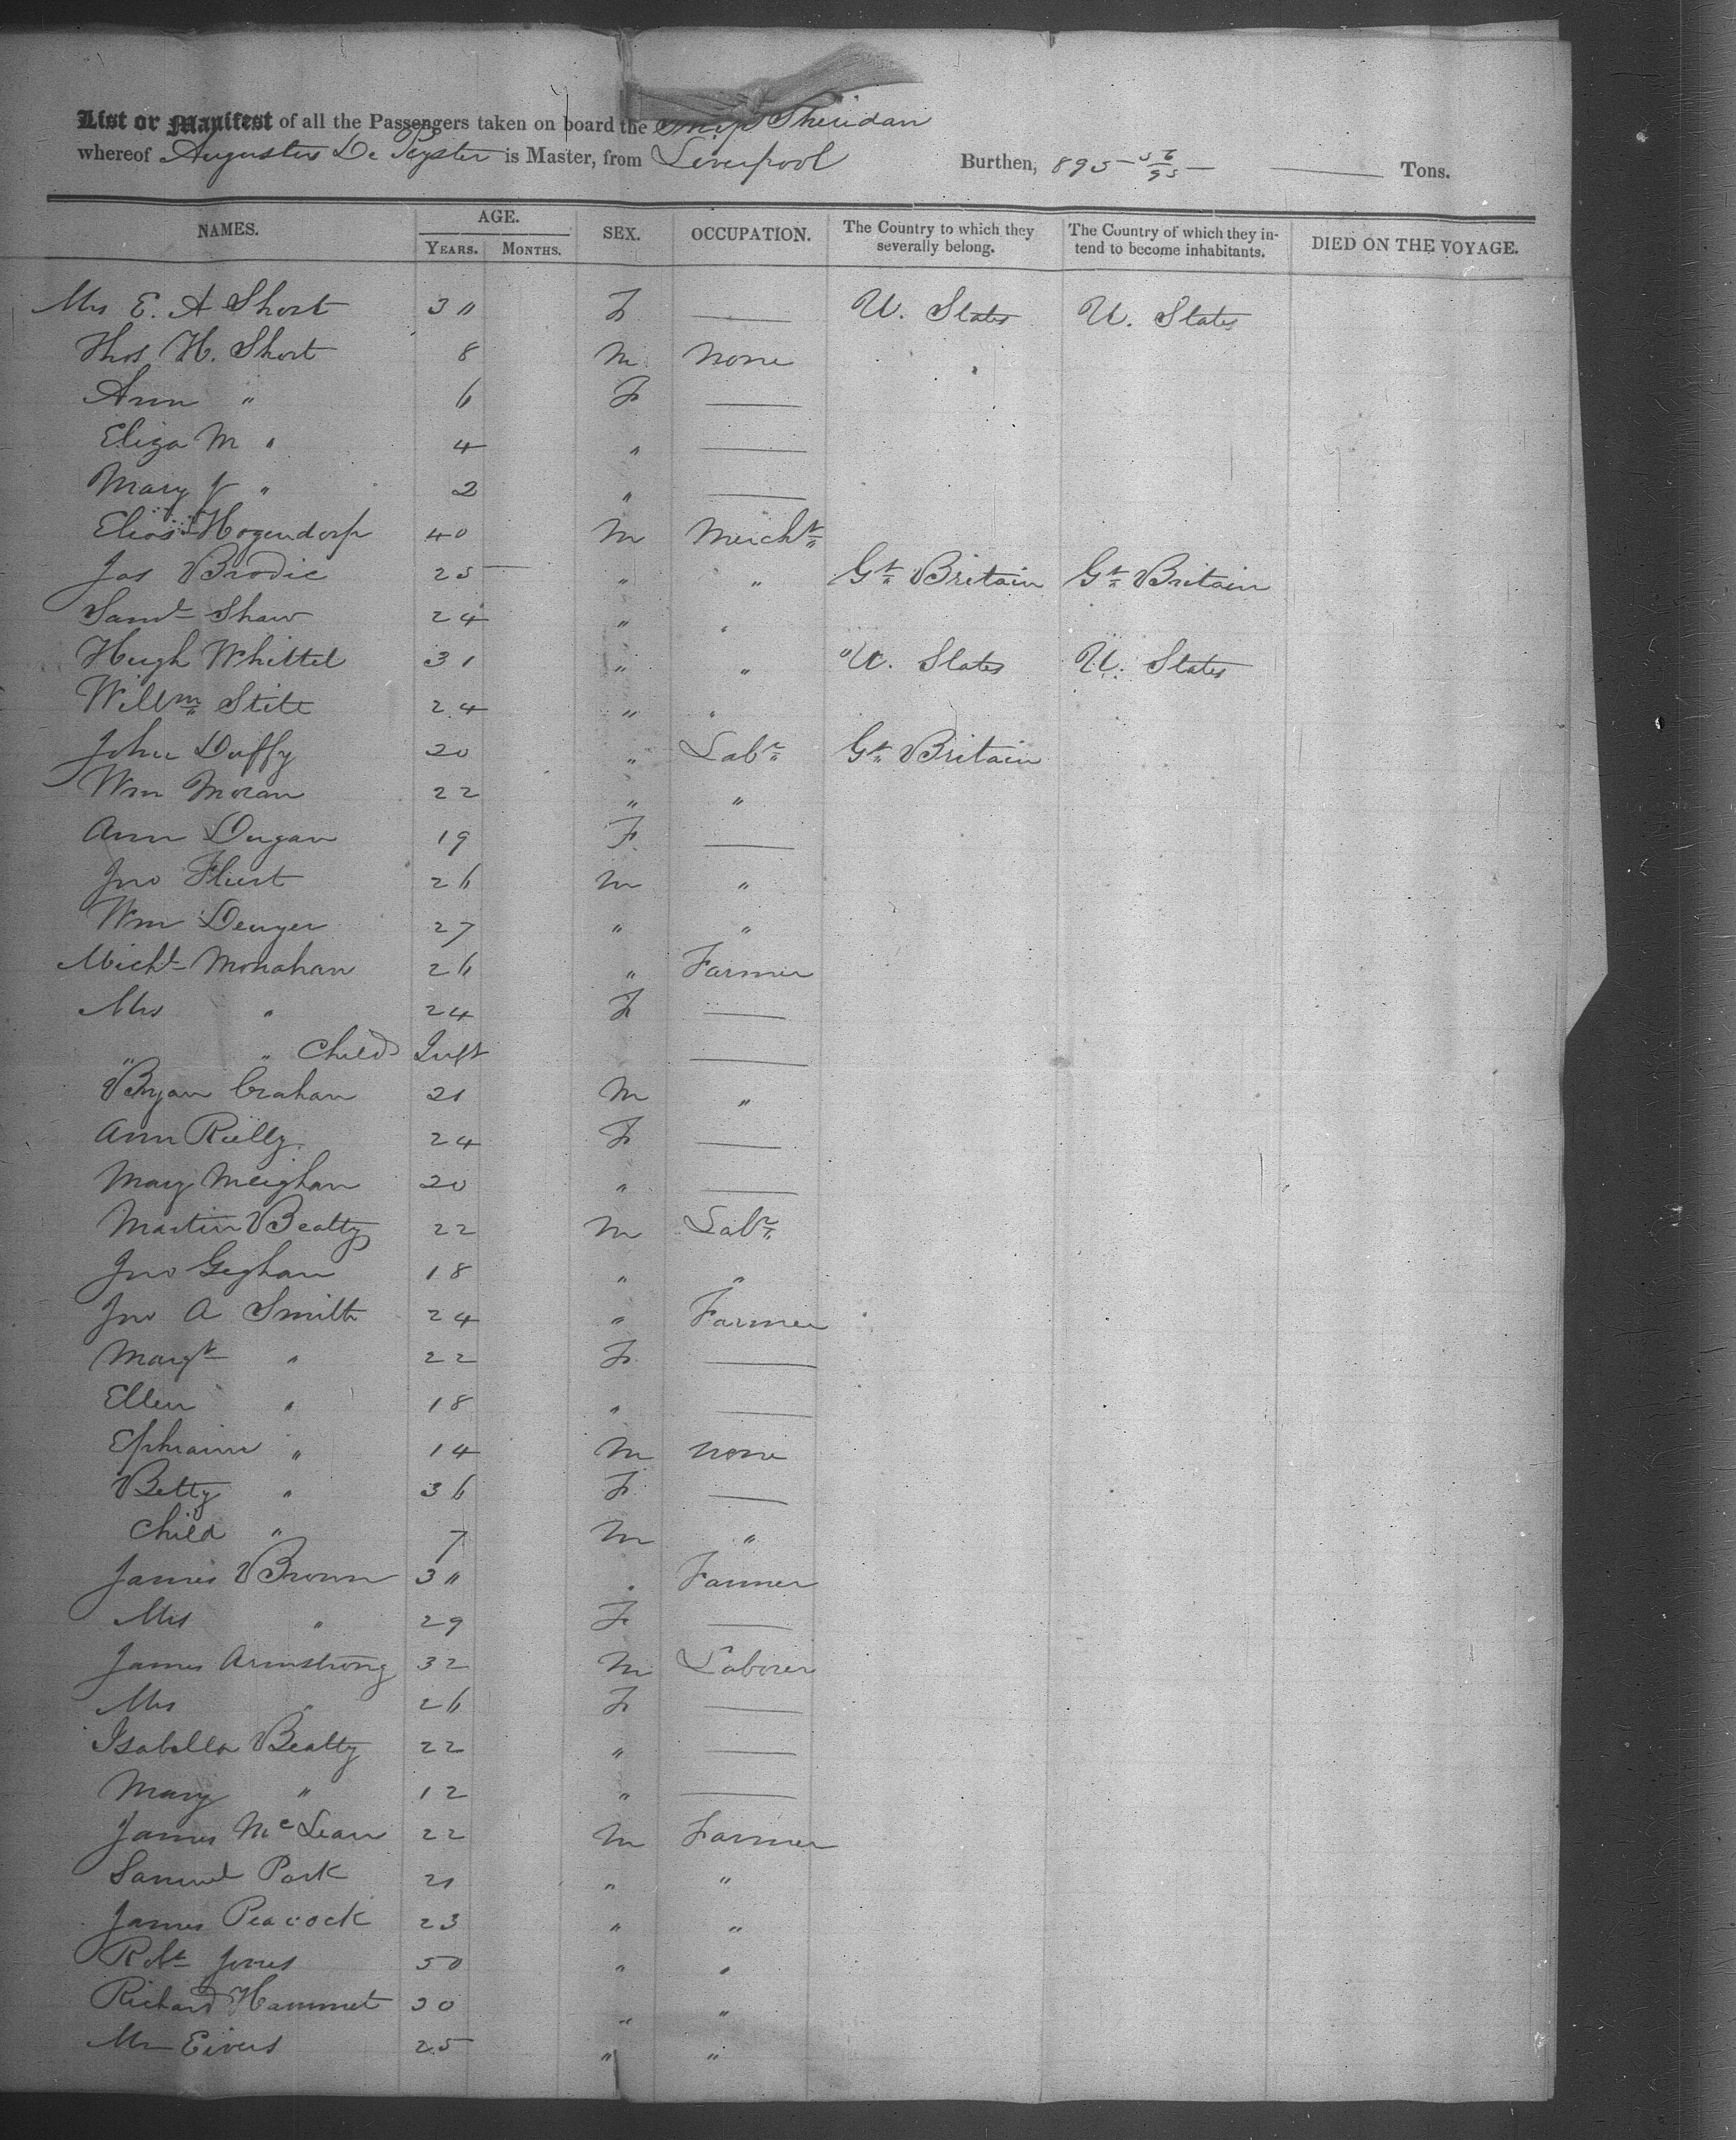 List or Manifest of all the Passengers taken on board the Ship Sheridan
whereof Augustus De Peyster is Master, from Liverpool Burthen, 895 56/95 Tons.
NAMES. AGE. YEARS. MONTHS. SEX. OCCUPATION. The Country to which they severally belong. The Country of which they intend to become inhabitants. DIED ON THE VOYAGE.
Mrs E. A Short 30 F — U. States U. States
Thos H. Short 8 M none
Ann " 6 F —
Eliza M " 4 " —
Mary J " 2 " —
Elias Hogendorp 40 M Mercht
Jas Brodie 25 " " Gt Britain Gt Britain
Saml Shaw 24 " "
Hugh Whittel 31 " " U. States U. States
Willm Stitt 24 " "
John Duffy 20 " Labr Gt Britain
Wm Moran 22 " "
Ann Dugan 19 F —
Jno Flint 26 M "
Wm Denyer 27 " "
Michl Monahan 26 " Farmer
Mrs " 24 F —
" " Child Inft —
Bryan Crahan 21 M "
Ann Rielly 24 F —
Mary Meighan 20 " —
Martin Beatty 22 M Labr
Jno Geghan 18 " "
Jno A Smith 24 " Farmer
Margt " 22 F —
Ellen " 18 " —
Ephraim " 14 M none
Betty " 36 F —
Child " 7 M "
James Brown 30 " Farmer
Mrs " 29 F —
James Armstrong 32 M Laborer
Mrs " 26 F —
Isabella Beatty 22 " —
Mary " 12 " —
James McLean 22 M Farmer
Samuel Park 21 " "
James Peacock 23 " "
Robt Jones 50 " "
Richard Hammet 30 " "
Mr Eivers 25 " "